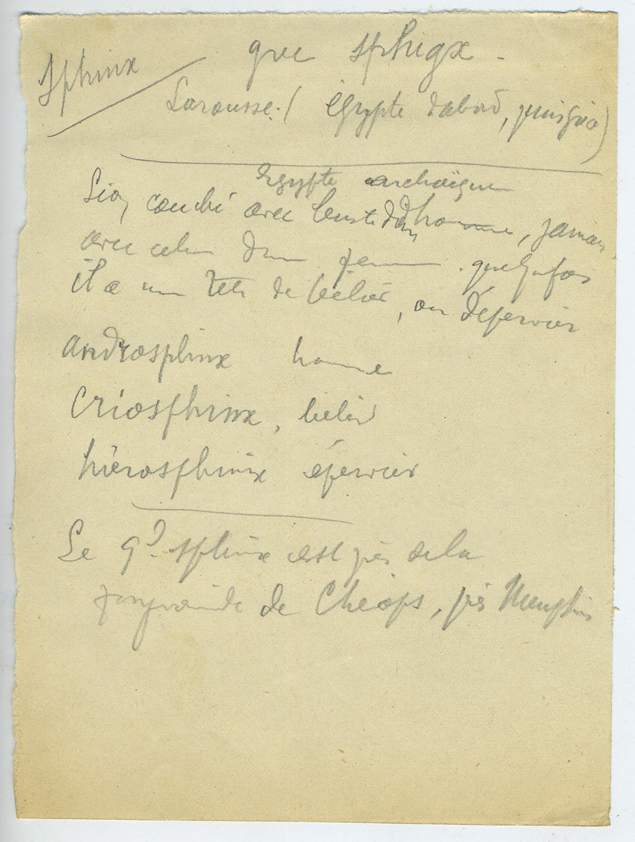 Sphinx grec sphigx.
Larousse. ( Égypte d'abord, puis grec)
Égypte archaïque
Lion couché avec buste d'homme, jamais
avec celui d'une femme. quelquefois
il a une tête de bélier, ou d'épervier
androsphinx homme
Criosphinx, bélier
hiérosphinx épervier
Le gd. sphinx est près de la
pyramide de Chéops, près Memphis